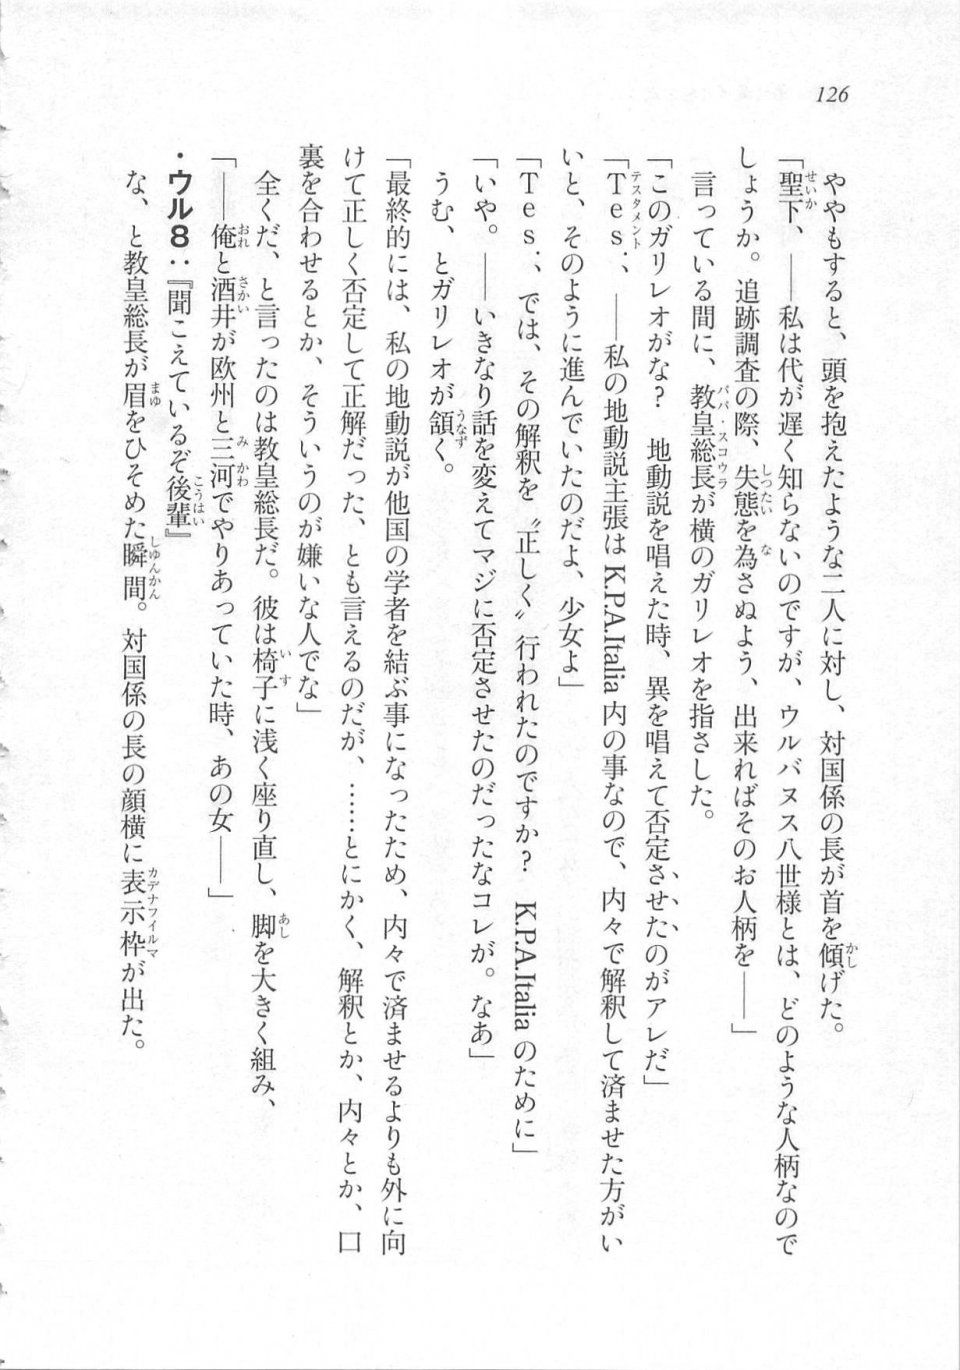 126
ややもすると、頭を抱えたような二人に対し、対国係の長が首を傾げた。
「聖下、――私は代が遅く知らないのですが、ウルバヌス八世様とは、どのような人柄なので
しょうか。追跡調査の際、失態を為さぬよう、出来ればそのお人柄を――」
言っている間に、教皇総長が横のガリレオを指さした。
「このガリレオがな？　地動説を唱えた時、異を唱えて否定させたのがアレだ」
「Tes.、――私の地動説主張は K.P.A.Italia 内の事なので、内々で解釈して済ませた方がい
いと、そのように進んでいたのだよ、少女よ」
「Tes.、では、その解釈を〝正しく〟行われたのですか？　K.P.A.Italia のために」
「いや。――いきなり話を変えてマジに否定させたのだったなコレが。なあ」
うむ、とガリレオが頷く。
「最終的には、私の地動説が他国の学者を結ぶ事になったため、内々で済ませるよりも外に向
けて正しく否定して正解だった、とも言えるのだが、……とにかく、解釈とか、内々とか、口
裏を合わせるとか、そういうのが嫌いな人でな」
全くだ、と言ったのは教皇総長だ。彼は椅子に浅く座り直し、脚を大きく組み、
「――俺と酒井が欧州と三河でやりあっていた時、あの女――」
・ウル８：『聞こえているぞ後輩』
な、と教皇総長が眉をひそめた瞬間。対国係の長の顔横に表示枠が出た。